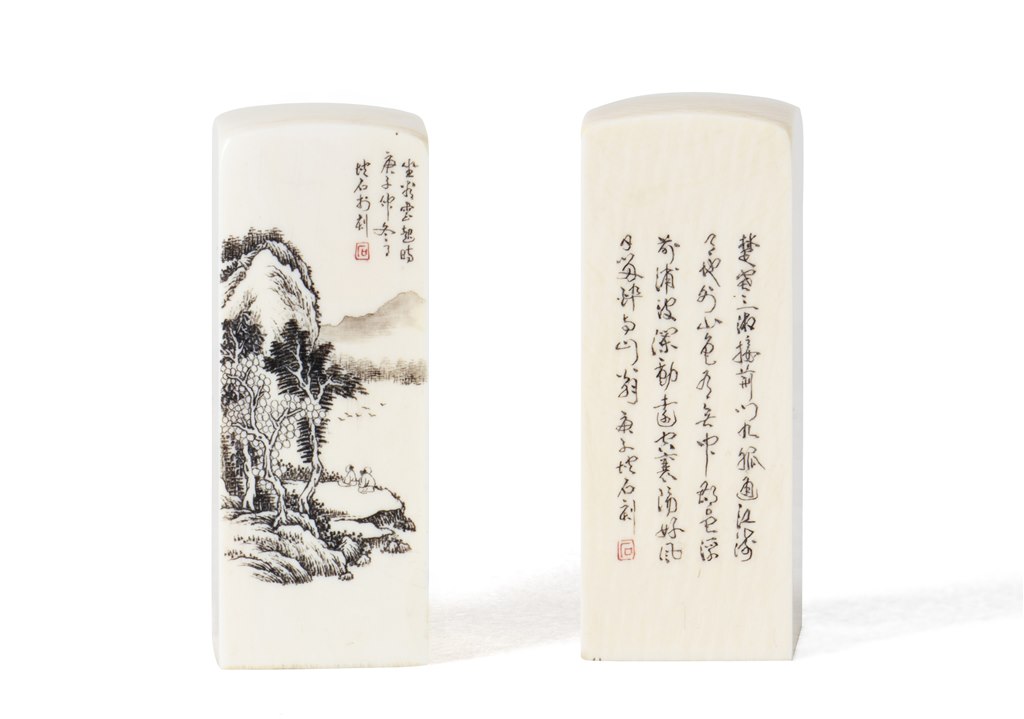 坐看雲起時
庚子仲冬
石
楚塞三湘接荊門九派通江流
天地外山色有无中郡邑浮
前浦波瀾動遠空襄陽好風
日留醉与山翁 庚子 石刻
石